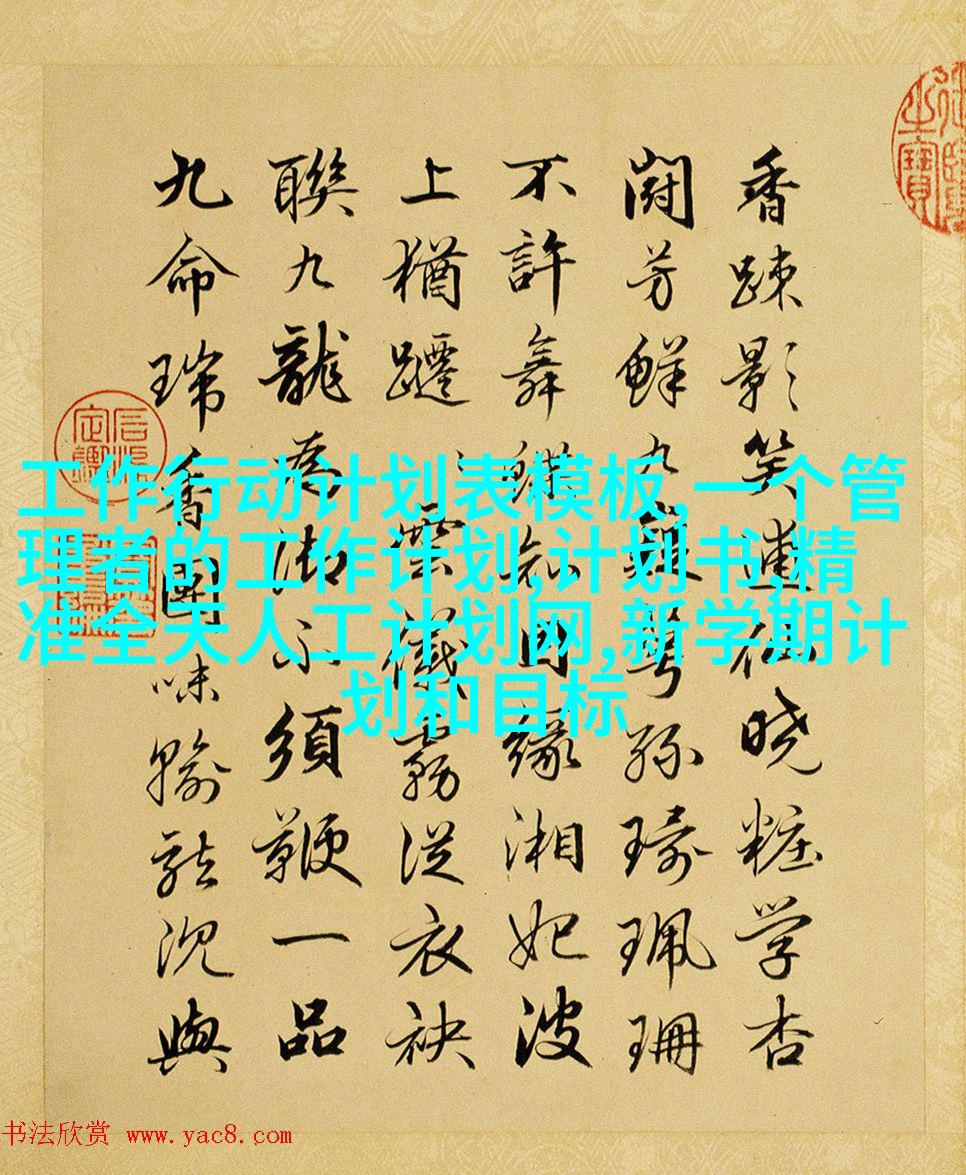 香踈影笑晓粧学杏
鬪芳鮮九孫珮珊
不許舞知緣湘妃波
上猶躚雲霧從衣袂
聯九龍御不須鞭一品
九命瑞香團味輸沉與
工作行动计划表模板,一个管
理者的工作计划,计划书,精
准全天人工计划网,新学期计
划和目标
书法欣赏 www.yac8.com